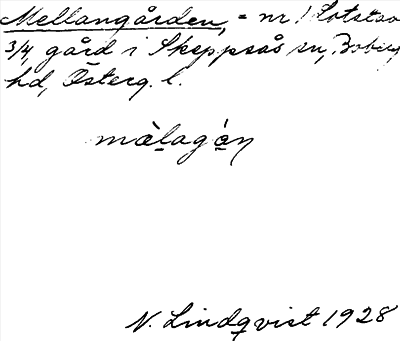 Mellangården, = nr 1 Lotstad
3/4, gård i Skeppsås sn, Boberg
hd, Österg. l.
mälagán
N. Lindqvist 1928